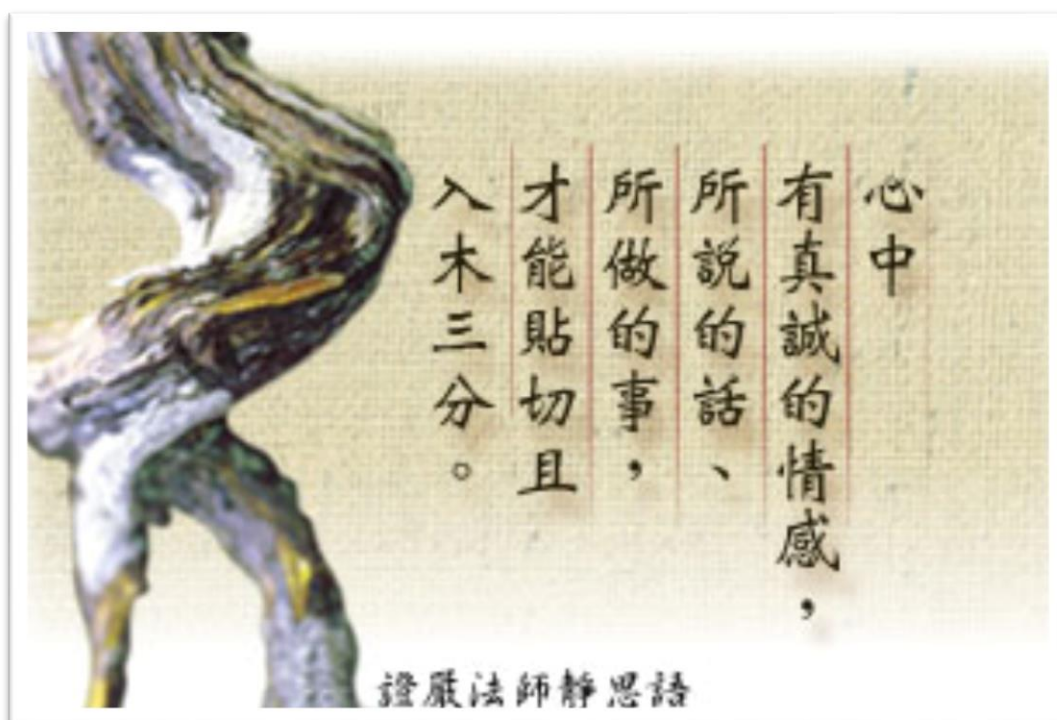 心中
有真誠的情感，
所說的話、
所做的事，
才能貼切且
入木三分。
證嚴法師靜思語